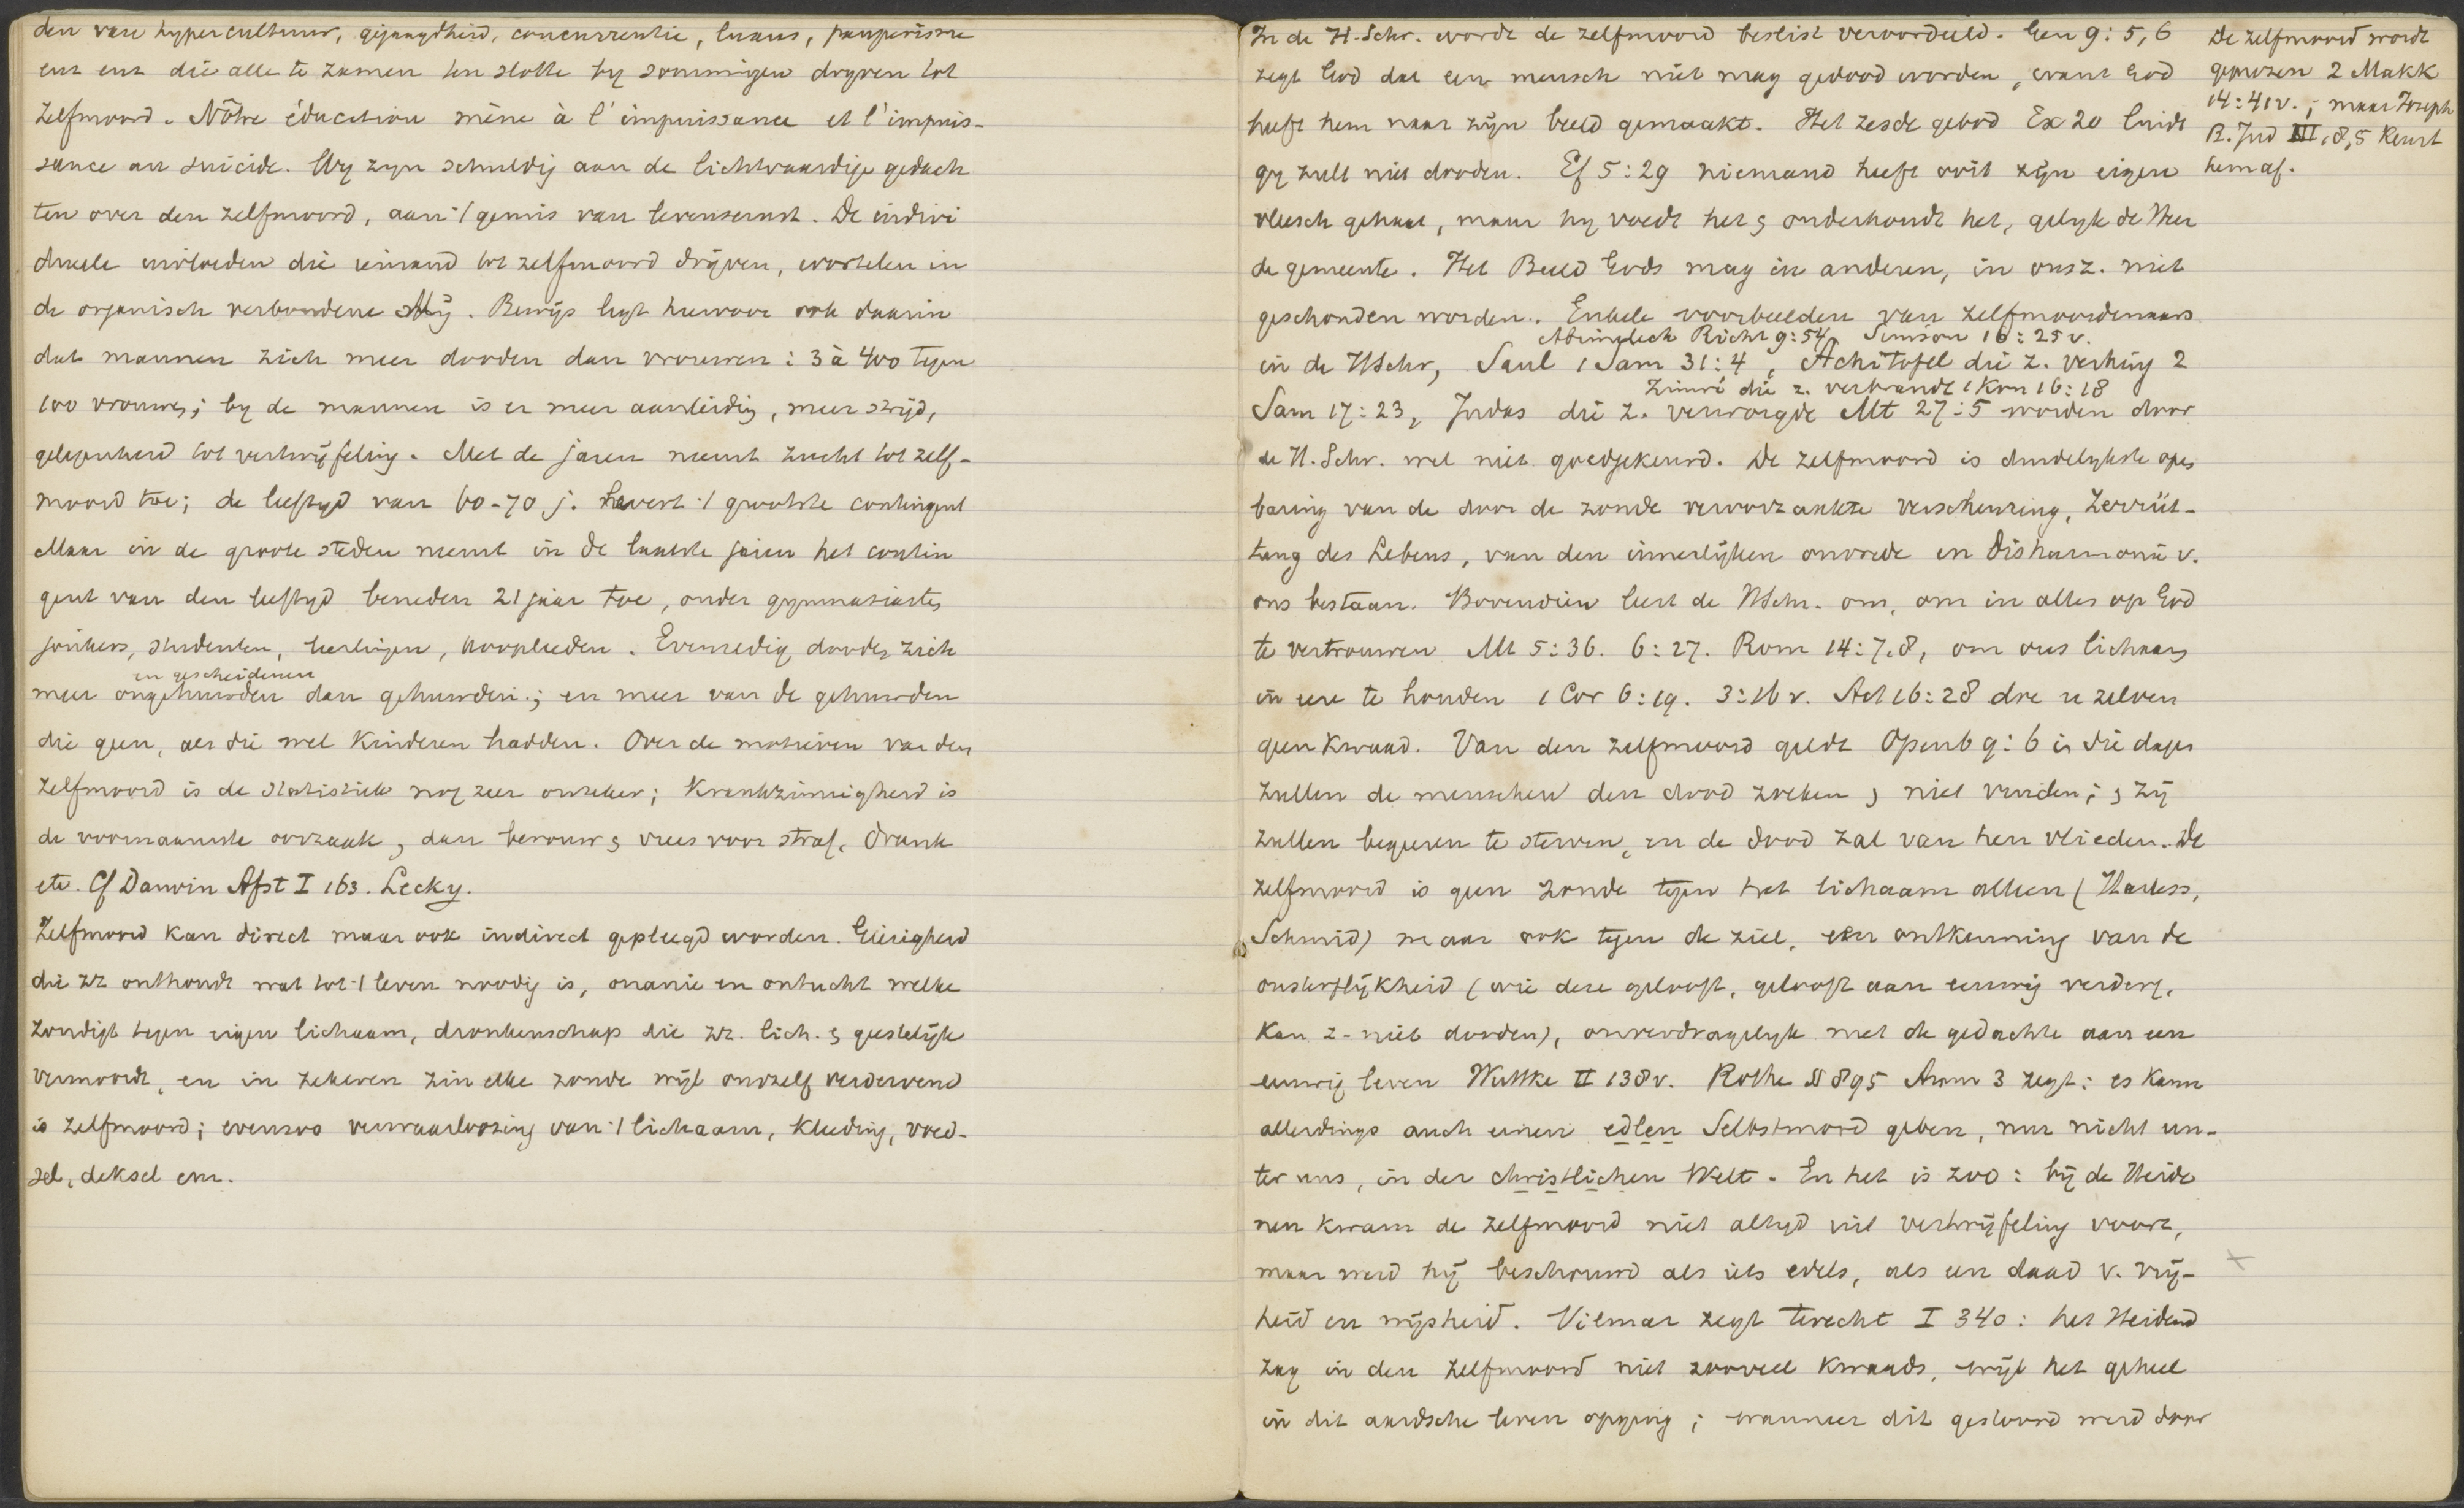 den van hypercultuur, gejaagdheid, concurrentie, luxus, pauperisme
enz enz die alle te zamen ten slotte by sommigen dryven tot
zelfmoord. Nôtre éducation mène à l'impuissance et l'impuis-
sance au suicide. Wy zyn schuldig aan de lichtvaardige gedach
ten over den zelfmoord, aan 't gemis van levensernst. De indivi
dueele invloeden die iemand tot zelfmoord drijven, wortelen in
de organisch verbondene Mij. Bewijs ligt hiervoor ook daarin
dat mannen zich meer dooden dan vrouwen: 3 à 400 tegen
100 vrouwen; by de mannen is er meer aanleiding, meer strijd,
gelegenheid tot vertwijfeling. Met de jaren neemt zucht tot zelf-
moord toe; de leeftyd van 60-70 j. levert 't grootste contingent
Maar in de groote steden neemt in de laatste jaren het contin
gent van den leeftyd beneden 21 jaar toe, onder gymnasiasten
jonkers, studenten, leerlingen, kooplieden. Evenredig dooden zich
en gescheidenen
meer ongehuwden dan gehuwden; en meer van de gehuwden
die geen, als die wel kinderen hadden. Over de motieven van den
zelfmoord is de statistiek nog zeer onzeker; Krankzinnigheid is
de voornaamste oorzaak, dan berouw & vrees voor straf, drank
etc. Cf Darwin Afst I 163. Lecky.
Zelfmoord kan direct maar ook indirect gepleegd worden. Gierigheid
die zz onthoudt wat tot 't leven noodig is, onanie en ontucht welke
zondigt tegen eigen lichaam, dronkenschap die zz. lich. & geestelijk
vermoordt, en in zekeren zin elke zonde wijl onszelf verdervend
is zelfmoord; evenzoo verwaarloozing van 't lichaam, kleeding, voed-
sel, deksel enz.
In de H. Schr. wordt de zelfmoord beslist veroordeeld. Gen 9: 5,6
zegt God dat een mensch niet mag gedood worden, want God
heeft hem naar zijn beeld gemaakt. Het zesde gebod Ex 20 luidt
gy zult niet dooden. Ef 5:29 niemand heeft ooit zijn eigen
vleesch gehaat, maar hy voedt het & onderhoudt het, gelyk de Heer
de gemeente. Het Beeld Gods mag in anderen, in onsz. niet
geschonden worden. Enkele voorbeelden van zelfmoordenaars
Abimelech Richt 9:54, Simson 16:25v.
in de HSchr, Saul 1 Sam 31:4, Achitofel die z. verhing 2
Zimri die z. verbrandt 1 Kon 16:18
Sam 17:23, Judas die z. verworgde Mt 27:5 worden door
de H. Schr. wel niet goedgekeurd. De zelfmoord is duidelykste open
baring van de door de zonde veroorzaakte verscheuring, Zerrüt-
tung des Lebens, van den innerlijken onvrede en disharmonie v.
ons bestaan. Bovendien leert de HSchr. ons, om in alles op God
te vertrouwen Mt 5:36. 6:27. Rom 14:7,8, om ons lichaam
in eere te houden 1 Cor 6:19. 3:16v. Act 16:28 doe u zelven
geen kwaad. Van den zelfmoord geldt Openb 9:6 in die dagen
zullen de menschen den dood zoeken & niet vinden; & zij
zullen begeeren te sterven, en de dood zal van hen vlieden. De
zelfmoord is geen zonde tegen het lichaam alleen (Harless,
Schmid) maar ook tegen de ziel, een ontkenning van de
onsterflijkheid (wie deze gelooft, gelooft aan eeuwig verderf,
kan z. niet dooden), onverdragelyk met de gedachte aan een
eeuwig leven Wuttke II 138v. Rothe § 895 Anm 3 zegt: es kann
allerdings auch einen edlen Selbstmord geben, nur nicht un-
ter uns, in der christlichen Welt. En het is zoo: bij de Heide
nen kwam de zelfmoord niet altyd uit vertwijfeling voort,
maar werd hij beschouwd als iets edels, als een daad v. vrij-
heid en wijsheid. Vilmar zegt terecht I 340: het Heidend
zag in den zelfmoord niet zooveel kwaads, wijl het geheel
in dit aardsche leven opging; wanneer dit gestoord werd door
De zelfmoord wordt
geprezen 2 Makk
14:41v.; maar Joseph
B. Jud III, 8,5 keurt
hem af.